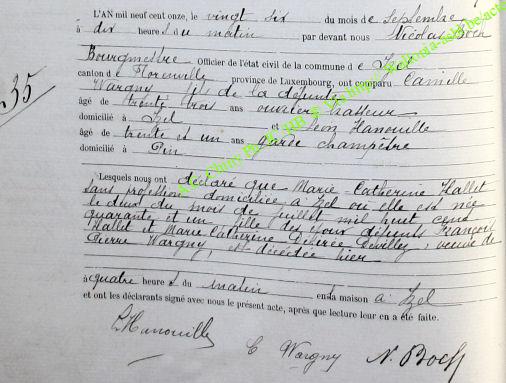 L'AN mil neuf cent onze, le vingt six du mois de Septembre
à dix heures du matin par devant nous Nicolas Boch
Bourgmestre Officier de l'état civil de la commune de Izel
canton de Florenville province de Luxembourg, ont comparu Camille
Wargny, fils de la défunte
âgé de trente trois ans ouvrier
domicilié à Izel et Léon Hanouille
âgé de trente et un ans garde champêtre
domicilié à Pin
35
Lesquels nous ont déclaré que Marie Catherine Hallet
sans profession domiciliée à Izel où elle est née
le deux du mois de juillet mil huit cent
quarante et un fille des époux défunts François
Hallet et Marie Catherine Désirée Devillez, veuve de
Pierre Wargny, est décédée hier
à quatre heures du matin en sa maison à Izel
et ont les déclarants signé avec nous le présent acte, après que lecture leur en a été faite.
L Hanouille
C Wargny
N. Boch